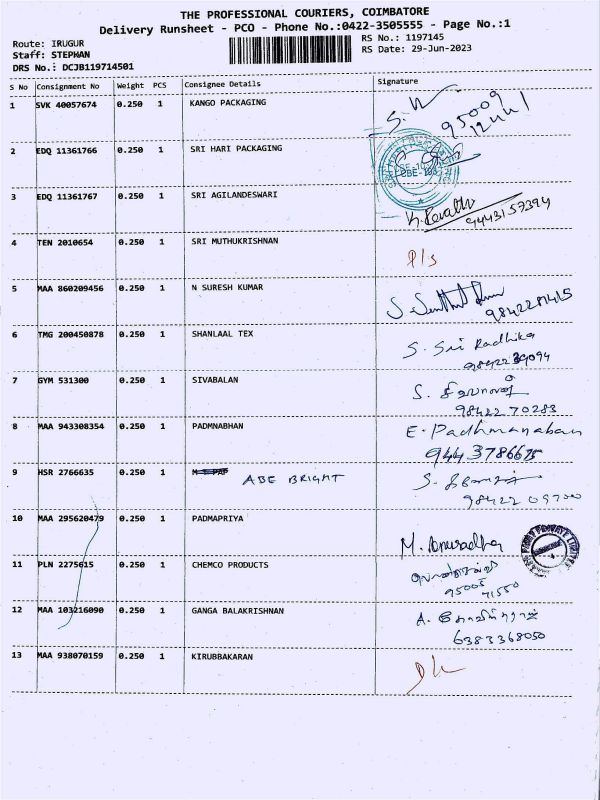 THE PROFESSIONAL COURIERS, COIMBATORE
Delivery Runsheet - PCO - Phone No.:0422-3505555 - Page No.:1
Route: IRUGUR RS No.: 1197145
Staff: STEPHAN RS Date: 29-Jun-2023
DRS No.: DCJB119714501
S No Consignment No Weight PCS Consignee Details Signature
1 SVK 40057674 0.250 1 KANGO PACKAGING S.W 95009
12441
2 EDQ 11361766 0.250 1 SRI HARI PACKAGING
3 EDQ 11361767 0.250 1 SRI AGILANDESWARI 9443157394
4 TEN 2010654 0.250 1 SRI MUTHUKRISHNAN P/s
5 MAA 860209456 0.250 1 N SURESH KUMAR
6 TMG 200450878 0.250 1 SHANLAAL TEX S. Sri Radhika
7 GYM 531300 0.250 1 SIVABALAN S. சிவபாலன்
98422 70283
8 MAA 943308354 0.250 1 PADMNABHAN E. Padhmanaban
9 HSR 2766635 0.250 1 ABE BRIGHT
10 MAA 295620479 0.250 1 PADMAPRIYA M. Anuradha
11 PLN 2275615 0.250 1 CHEMCO PRODUCTS
95005
71550
12 MAA 103216090 0.250 1 GANGA BALAKRISHNAN A. கோவிந்தராஜ்
6383368050
13 MAA 938070159 0.250 1 KIRUBBAKARAN